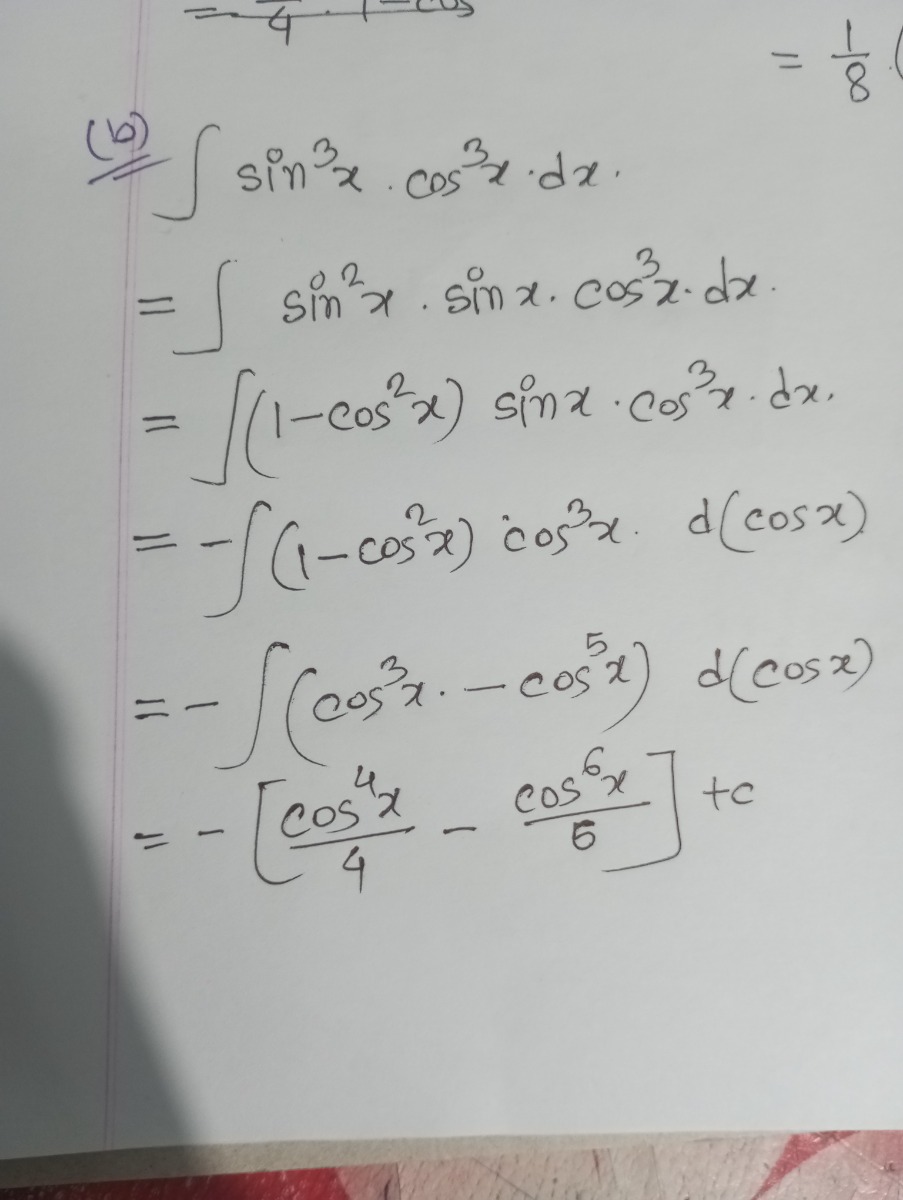 = 1/8 (
(b) ∫ sin³x . cos³x . dx.
= ∫ sin²x . sin x . cos³x . dx.
= ∫(1-cos²x) sin x . cos³x . dx.
= -∫(1-cos²x) cos³x . d(cos x)
= -∫(cos³x . - cos⁵x) d(cos x)
= - [cos⁴x/4 - cos⁶x/6] + c